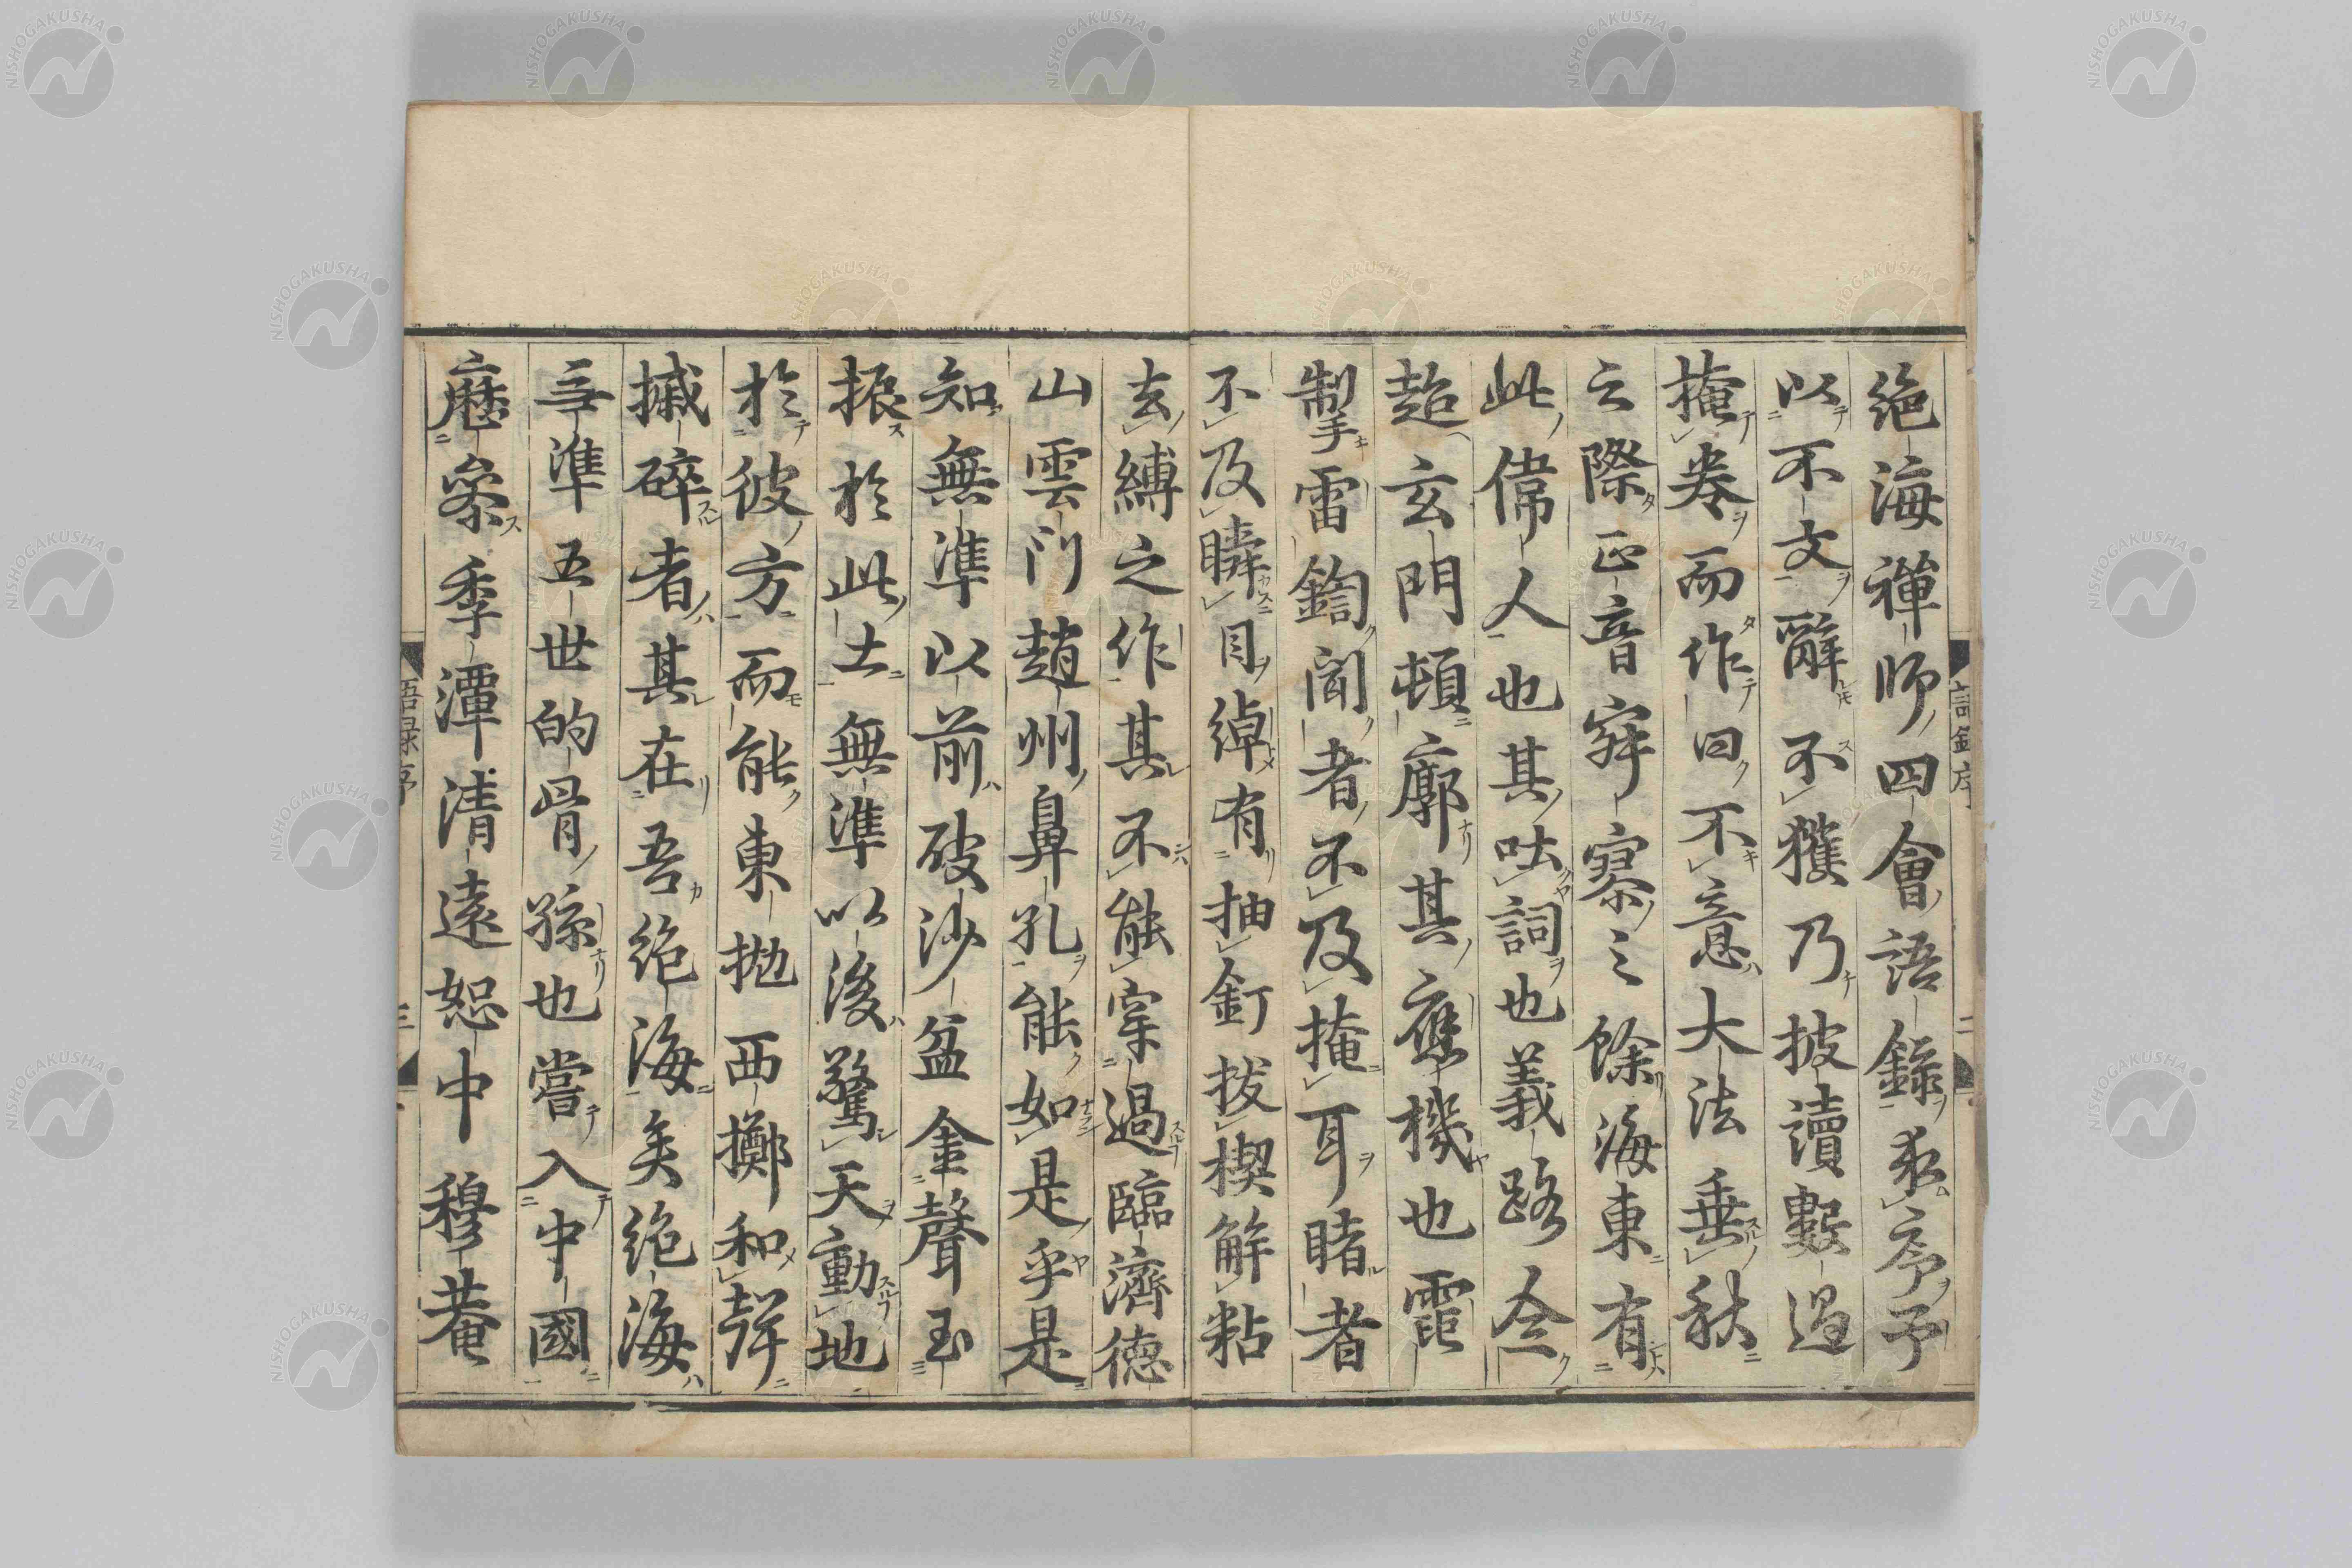 絶海禪師四會語錄求序予
以不文辭不獲乃披讀數過
掩卷而作曰不意大法垂秋
之際正音寂寥之餘海東有
此偉人也其吐詞也義路仝
超玄門頓廓其應機也霆
掣雷鍧聞者不及掩耳睹者
不及瞬目綽有抽釘拔楔解粘
去縛之作其不能穿過臨濟德
山雲門趙州鼻孔能如是乎是
知無準以前破沙盆金聲玉
振於此土無準以後驚天動地
於彼方而能東拋西擲和聲
摵碎者其在吾絶海矣絶海
無準五世的骨孫也嘗入中國
歷參季潭清遠恕中穆菴
語録序
二
語録序
三
NISHOGAKUSHA